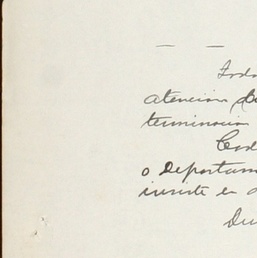 Toda
atencion de
terminacion
Cad
o Departam
insiste en a
Du